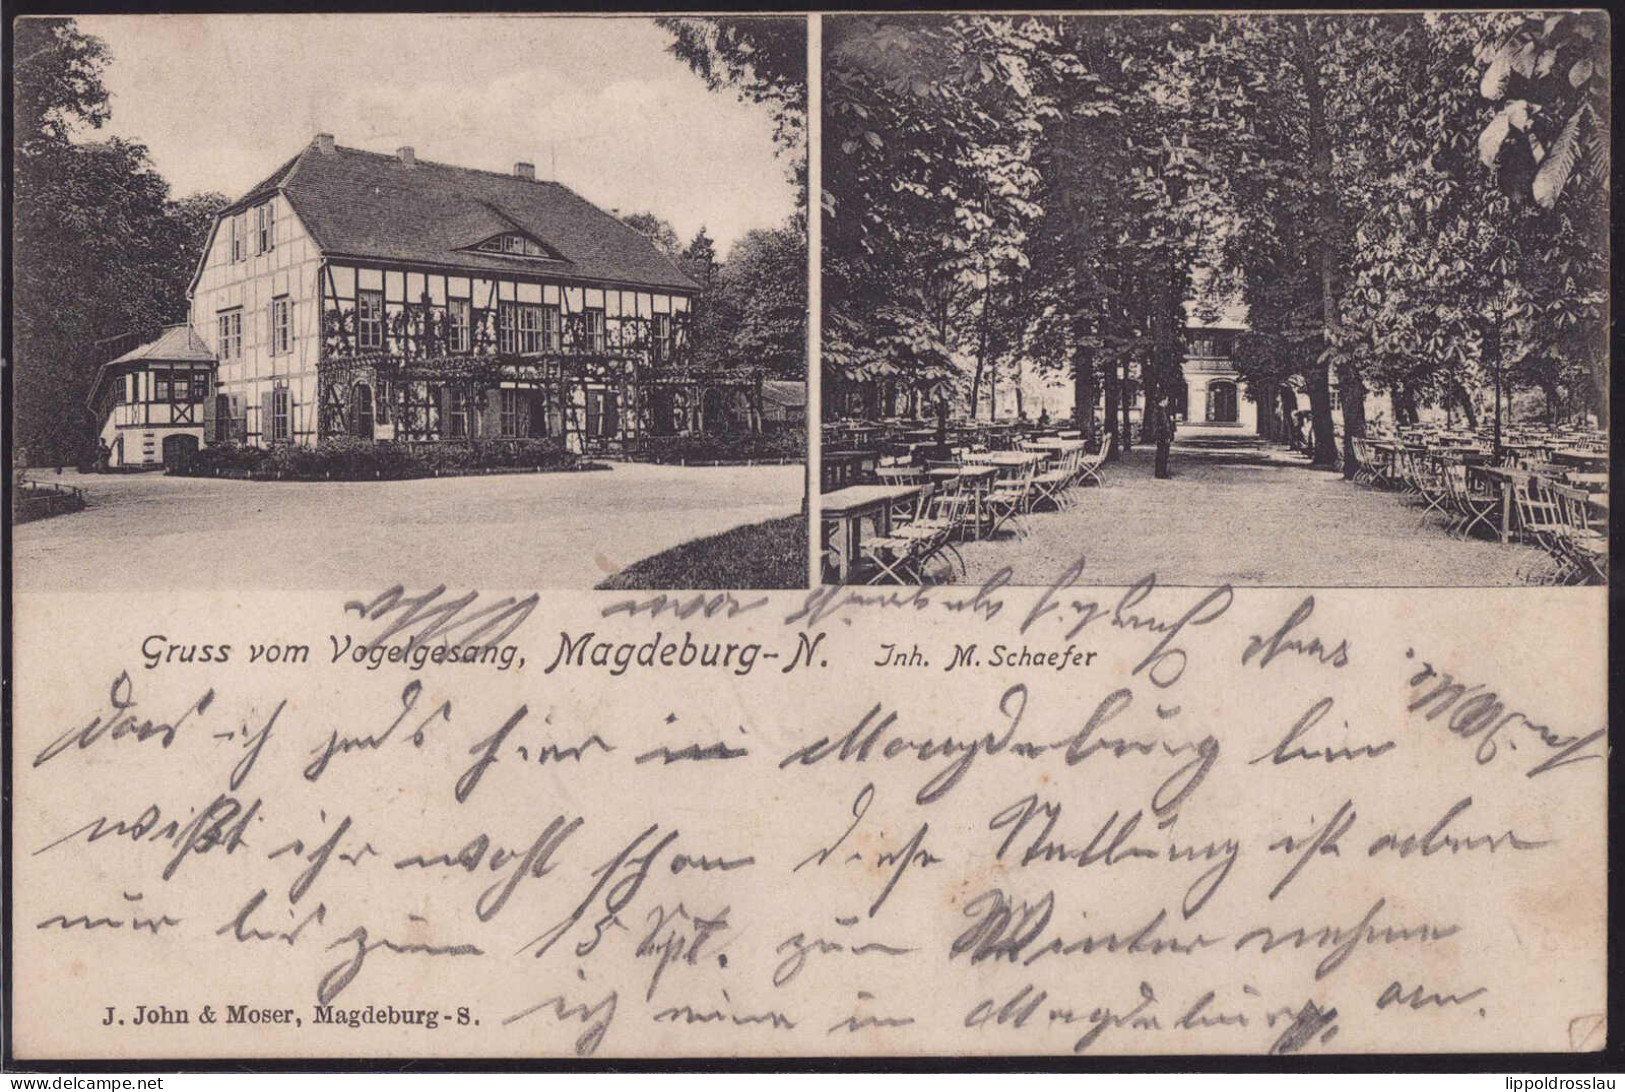 Gruss vom Vogelgesang, Magdeburg-N. Inh. M. Schaefer
dass ich jetzt hier in Magdeburg bin
wißt ihr wohl schon diese Stellung ist aber
nur bis zum 15 Spt. zum Winter nehme
ich eine in Magdeburg an.
J. John & Moser, Magdeburg-S.
lippoldrosslau